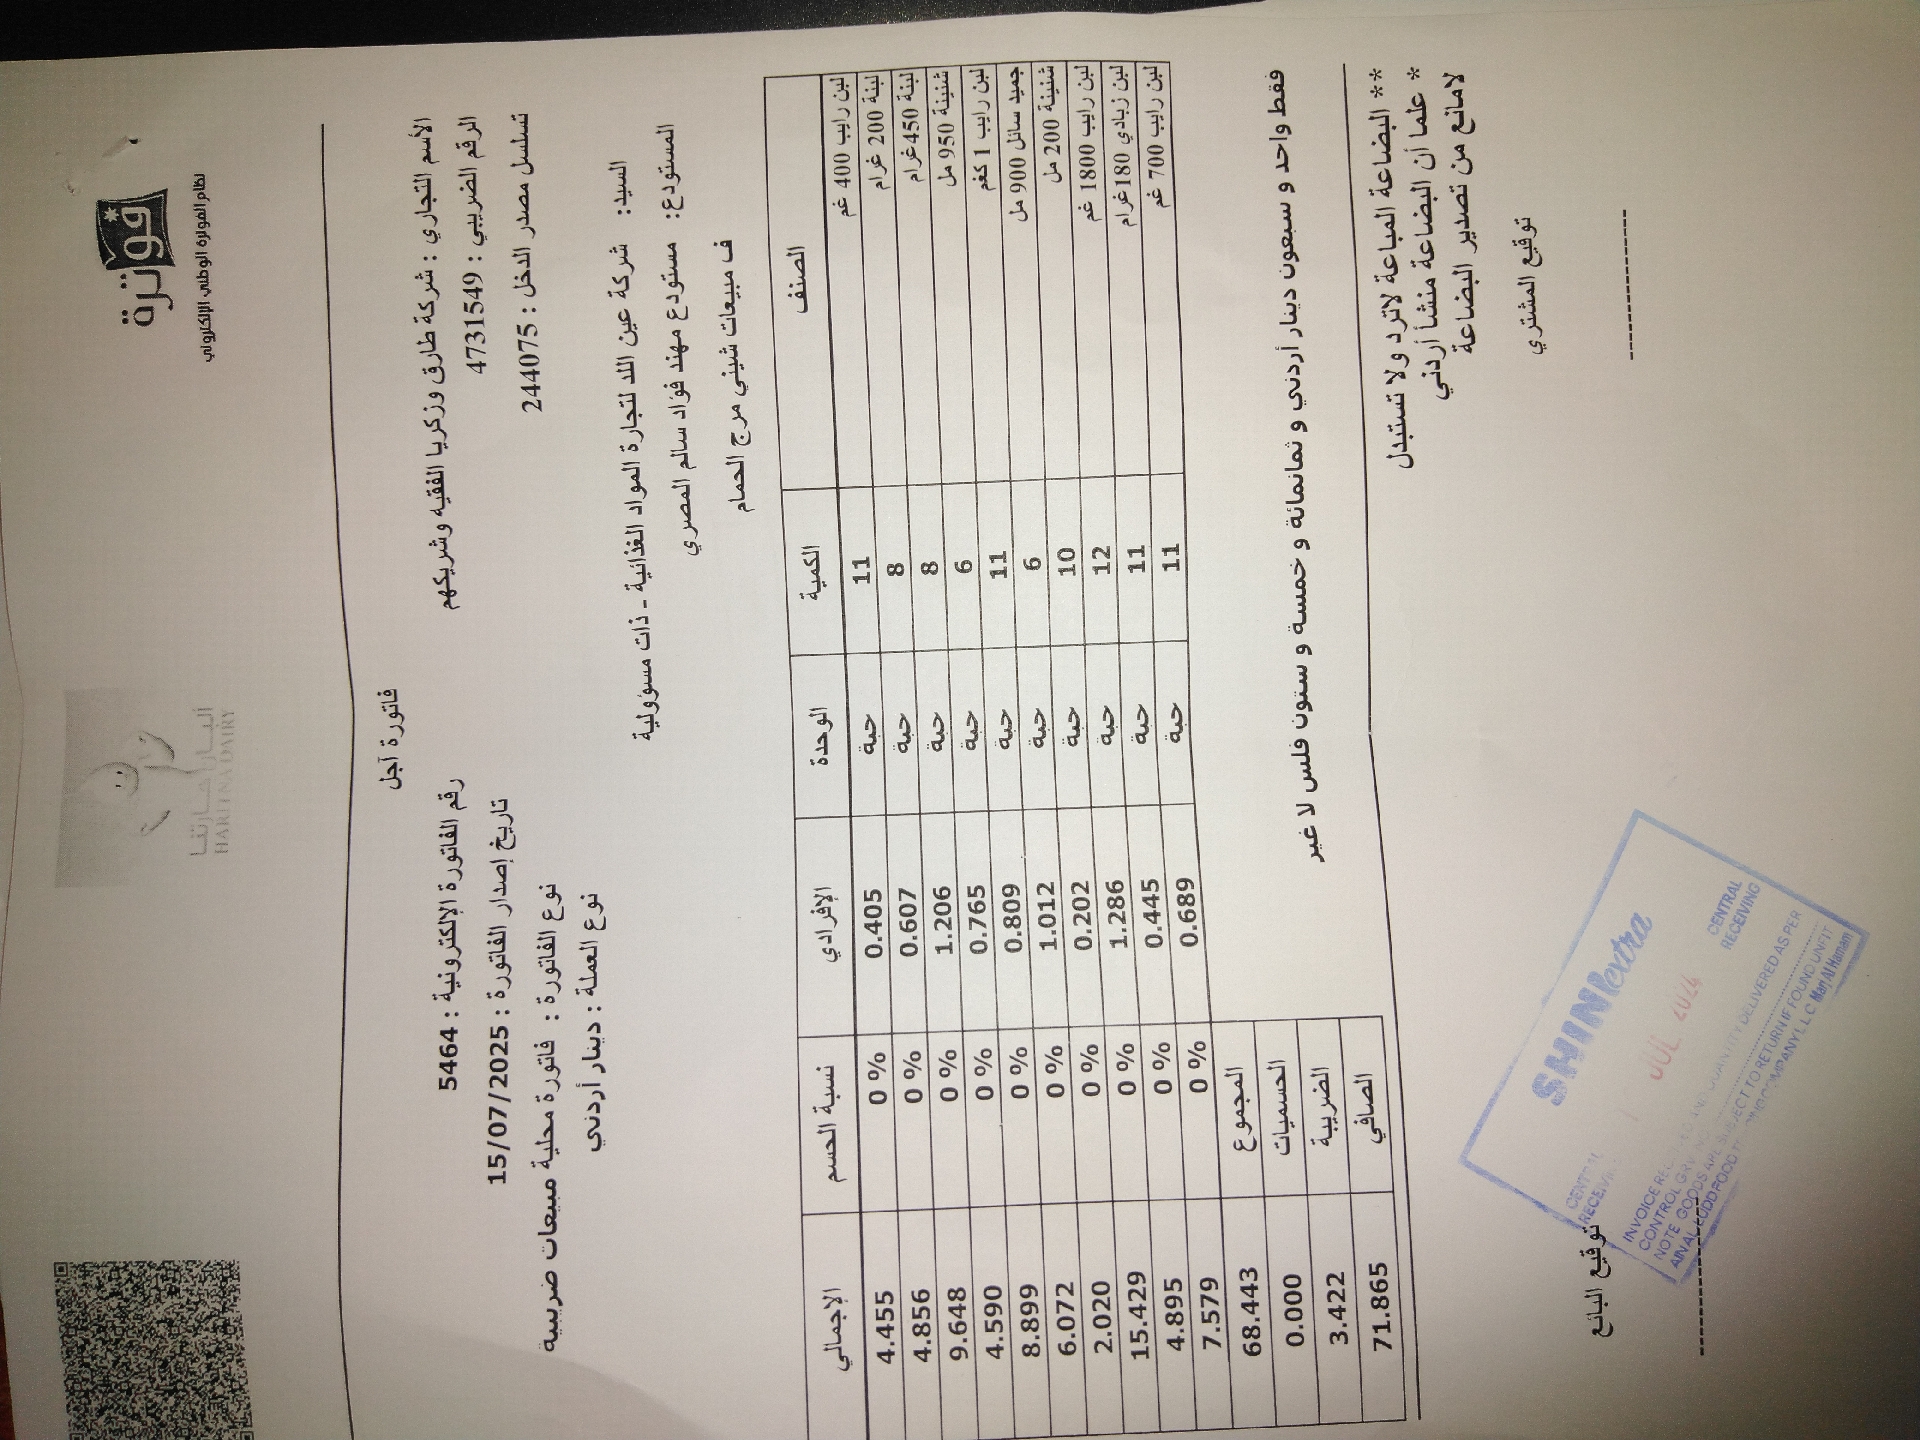 فوترة
نظام الفوترة الوطني الإلكتروني
ألبان حارتنا
HARITNA DAIRY
فاتورة آجل
الأسم التجاري : شركة طارق وزكريا الفقيه وشريكهم
رقم الفاتورة الإلكترونية : 5464
الرقم الضريبي : 4731549
تاريخ إصدار الفاتورة : 15/07/2025
تسلسل مصدر الدخل : 244075
نوع الفاتورة : فاتورة محلية مبيعات ضريبية
نوع العملة : دينار أردني
السيد: شركة عين اللد لتجارة المواد الغذائية - ذات مسؤولية
المستودع: مستودع مهند فؤاد سالم المصري
ف مبيعات شيني مرج الحمام
الصنف الكمية الوحدة الإفرادي نسبة الحسم الإجمالي
لبن رايب 400 غم 11 حبة 0.405 0 % 4.455
لبنة 200 غرام 8 حبة 0.607 0 % 4.856
لبنة 450غرام 8 حبة 1.206 0 % 9.648
شنينة 950 مل 6 حبة 0.765 0 % 4.590
لبن رايب 1 كغم 11 حبة 0.809 0 % 8.899
جميد سائل 900 مل 6 حبة 1.012 0 % 6.072
شنينة 200 مل 10 حبة 0.202 0 % 2.020
لبن رايب 1800 غم 12 حبة 1.286 0 % 15.429
لبن زبادي 180غرام 11 حبة 0.445 0 % 4.895
لبن رايب 700 غم 11 حبة 0.689 0 % 7.579
المجموع 68.443
الحسميات 0.000
الضريبة 3.422
الصافي 71.865
فقط واحد و سبعون دينار أردني و ثمانمائة و خمسة و ستون فلس لا غير
** البضاعة المباعة لاترد ولا تستبدل
* علما أن البضاعة منشأ أردني
لامانع من تصدير البضاعة
توقيع المشتري
توقيع البائع
SHINI extra
CENTRAL
RECEIVING
JUL
CENTRAL
RECEIVING
INVOICE DELIVERED AS PER
CONTROL GRV
NOTE GOODS ARE SUBJECT TO RETURN IF FOUND UNFIT
AINAL LUDD FOOD COMPANY L.L.C Marj Al Hamam